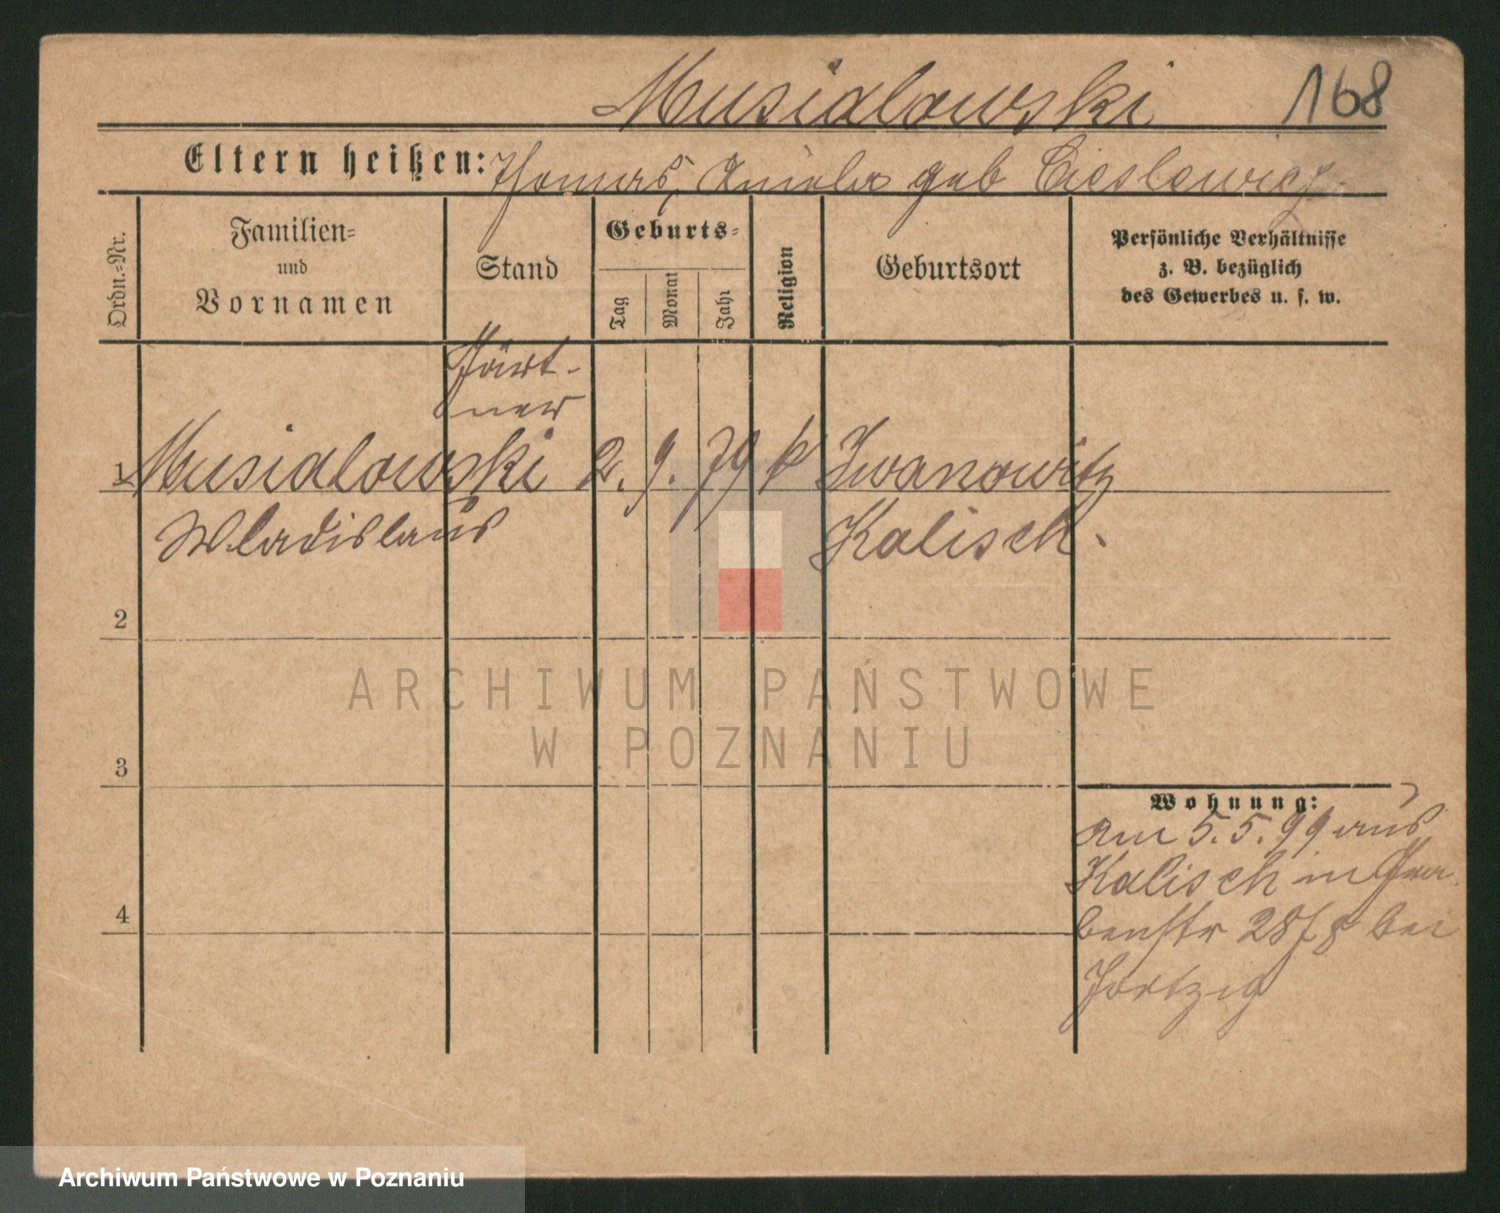 Musialowski 168
Eltern heißen: Thomas, Aniela geb Cieslewicz.
Ordn.=Nr.
Familien=
und
Vornamen
Stand
Geburts=
Tag
Monat
Jahr
Religion
Geburtsort
Persönliche Verhältnisse
z. B. bezüglich
des Gewerbes u. s. w.
Gärt-
ner
1 Musialowski 2. 9. 79 k Iwanowitz
Wladislaus Kalisch.
2
ARCHIWUM PAŃSTWOWE
W POZNANIU
3
Wohnung:
am 5.5.99 aus
Kalisch in Gra
benstr 28 bei
4
Archiwum Państwowe w Poznaniu